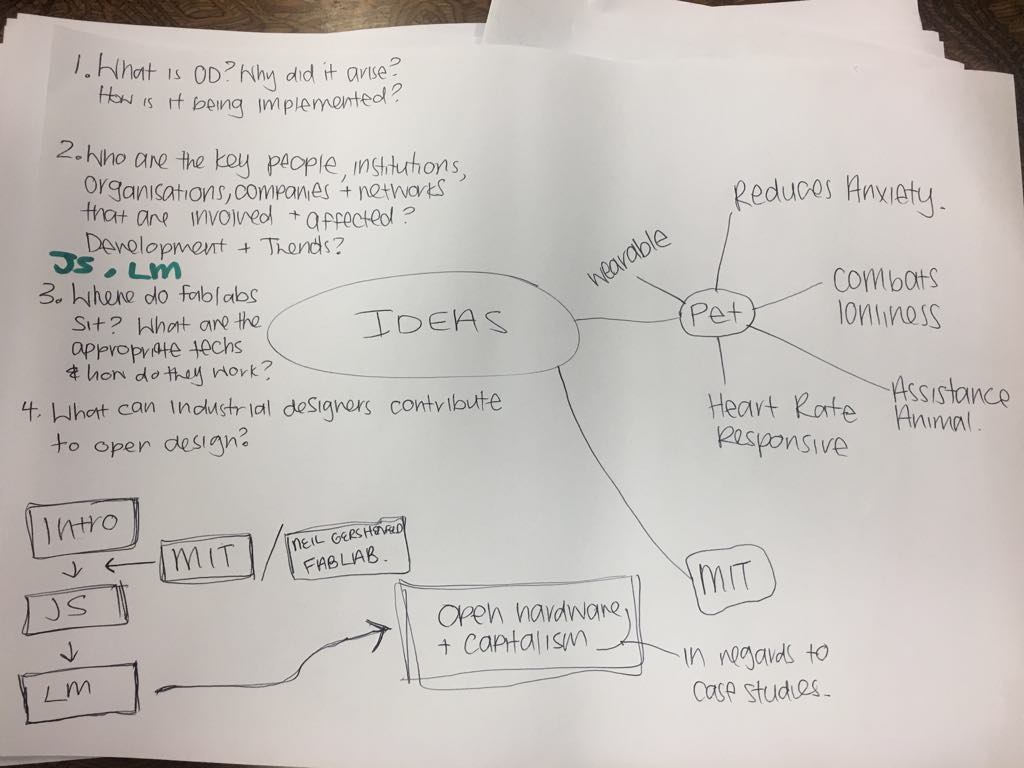 1. What is OD? Why did it arise?
How is it being implemented?
2. Who are the key people, institutions,
organisations, companies + networks
that are involved + affected?
Development + Trends?
JS. LM
3. Where do fablabs
sit? What are the
appropriate techs
& how do they work?
4. What can industrial designers contribute
to open design?
IDEAS
wearable
Pet
Reduces Anxiety.
Combats
lonliness
Assistance
Animal.
Heart Rate
Responsive
MIT
Intro
MIT
/
NEIL GERSHENFELD
FABLAB.
JS
LM
Open hardware
+ capitalism
in regards to
case studies.